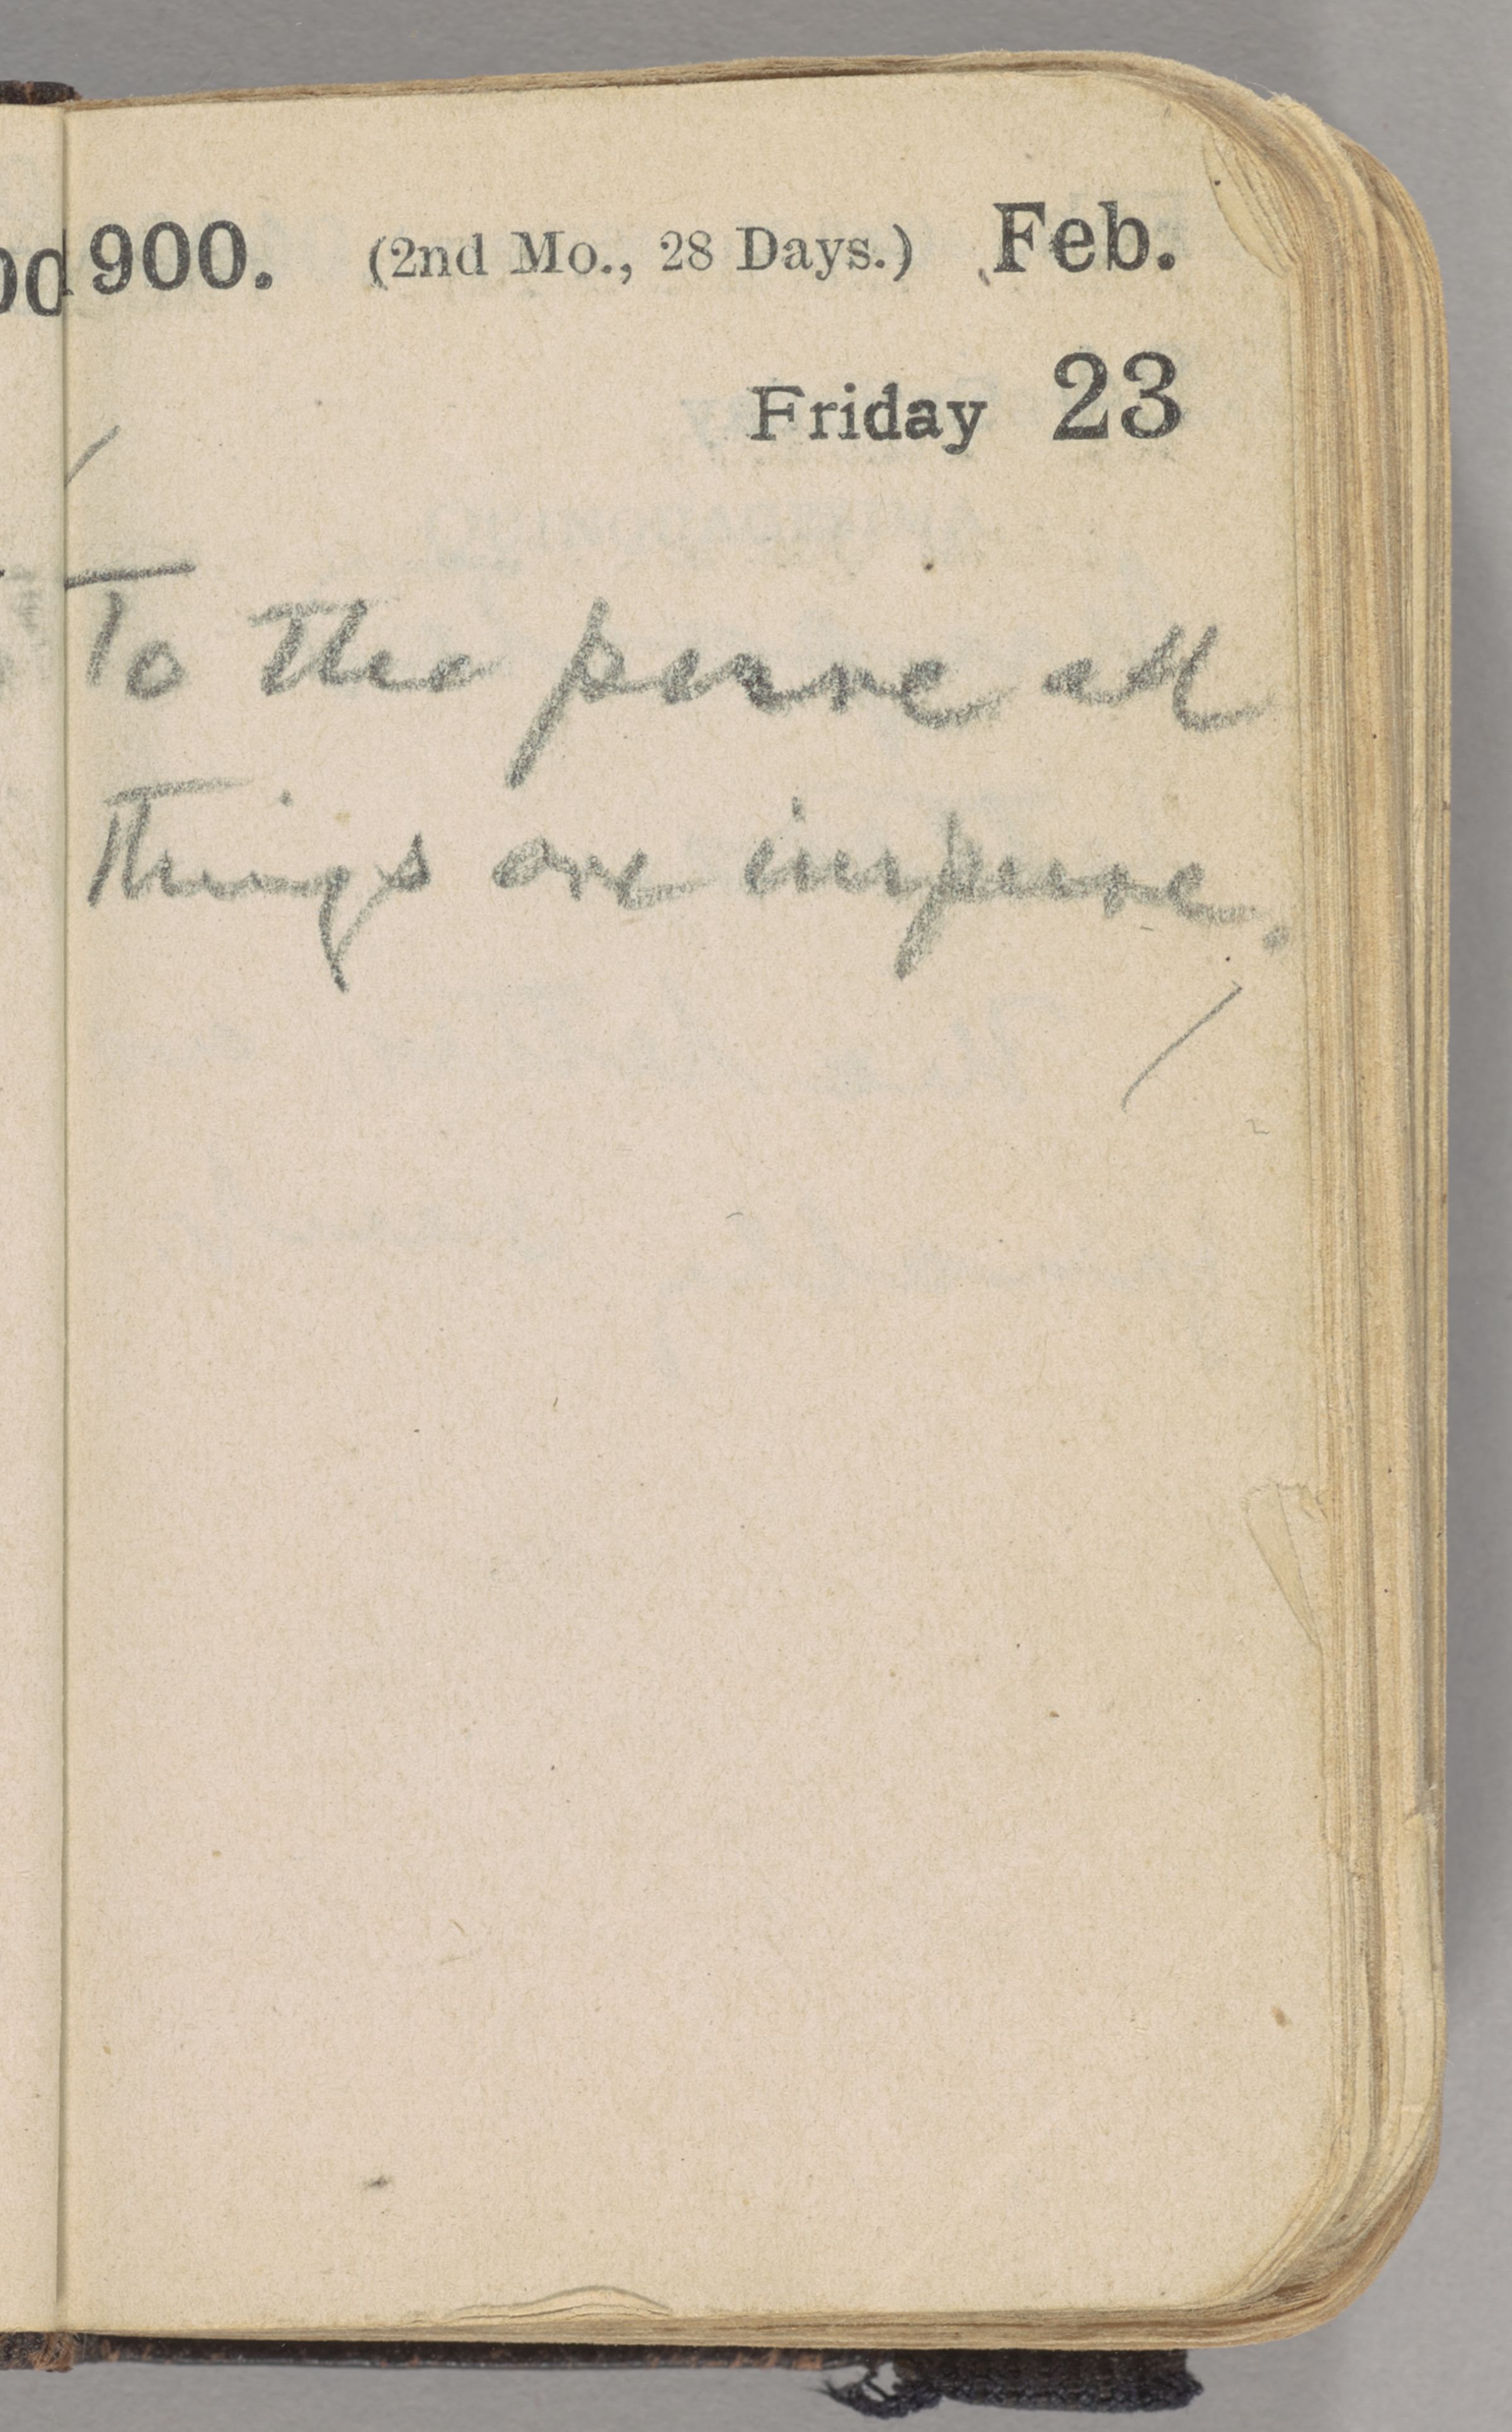 900. (2nd Mo., 28 Days.) Feb.
Friday 23
To the pure all
things are impure.